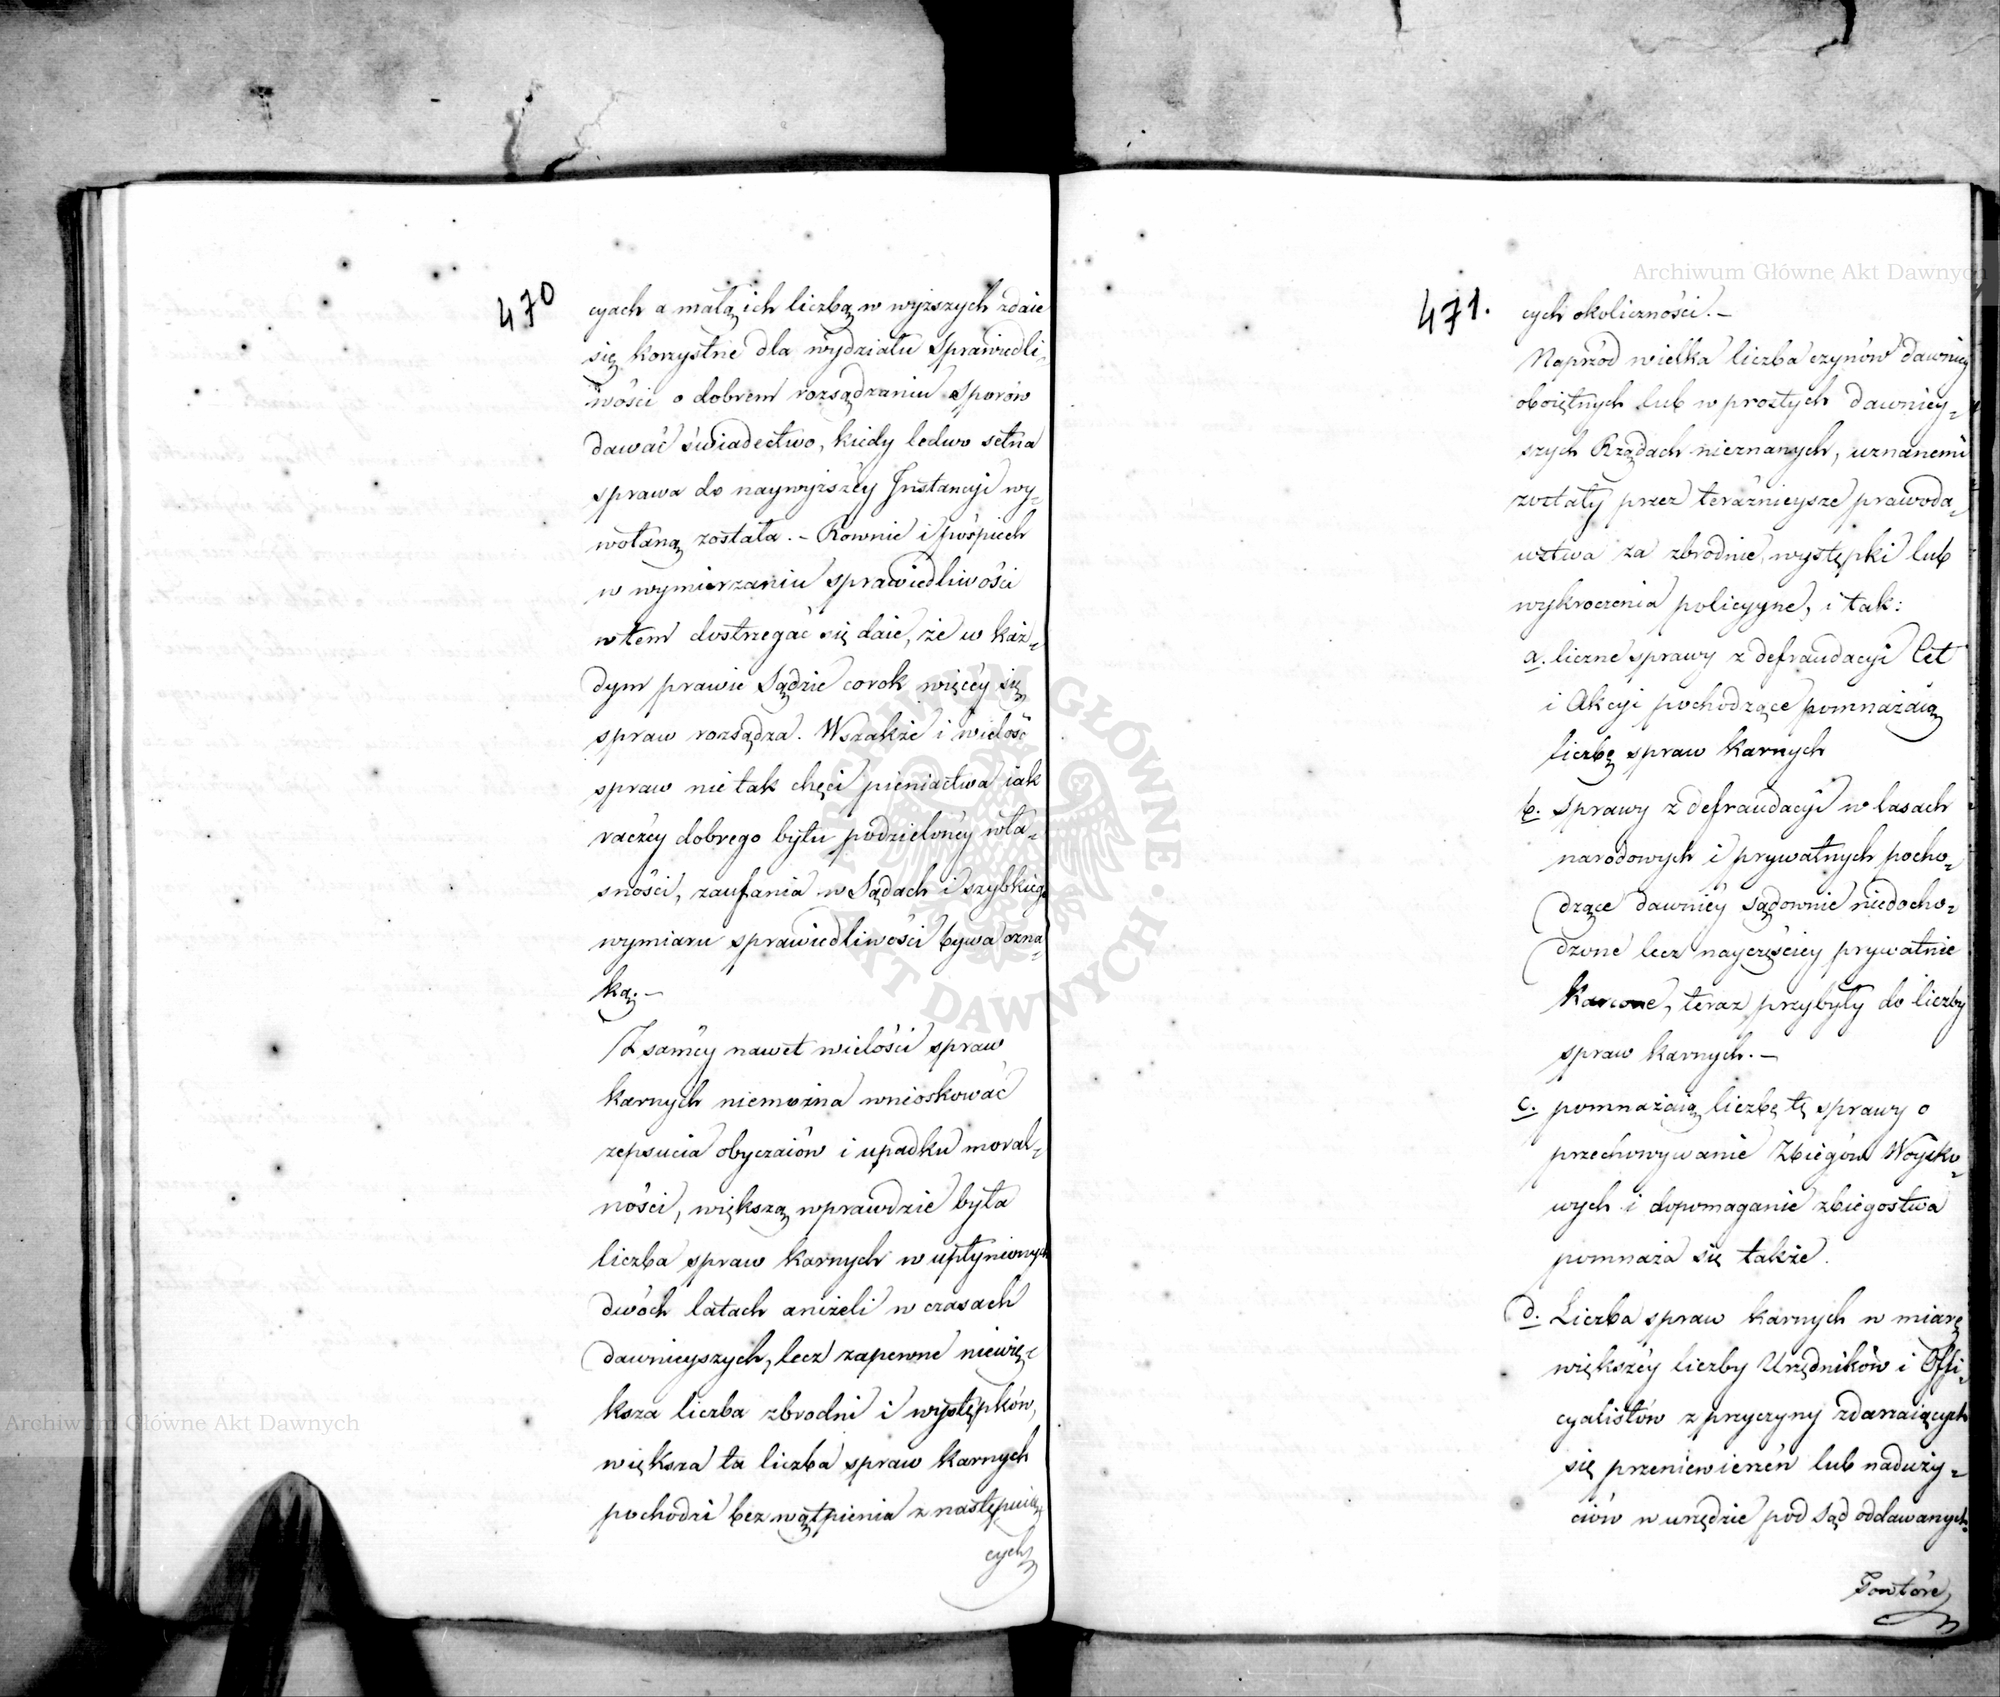 470
cyach a małą ich liczbą w wyższych zdaie
się korzystne dla wydziału Sprawiedli-
wości o dobrem rozsądzaniu Sporów
dawać świadectwo, kiedy ledwo setna
sprawa do naywyższéy Instancyi wy-
wołaną została. - Rownie i pośpiech
w wymierzaniu sprawiedliwości
w tem dostrzegać się daie, że w każ-
dym prawie Sądzie corok więcéy się
spraw rozsądza. Wszakże i wielość
spraw nie tak chęci pieniactwa iak
raczéy dobrego bytu podzielonéy wła-
sności, zaufania w Sądach i szybkiego
wymiaru sprawiedliwości bywa ozna-
ką. -
Z saméy nawet wielości spraw
karnych niemożna wnioskować
zepsucia obyczaiów i upadku moral-
ności, większą wprawdzie była
liczba spraw karnych w upłynionych
dwóch latach aniżeli w czasach
dawnieyszych, lecz zapewne niewię-
ksza liczba zbrodni i występków,
większa ta liczba spraw karnych
pochodzi bez wątpienia z następuią-
cych
471.
cych okoliczności. -
Naprzód wielka liczba czynów dawniéy
oboiętnych lub w prostych dawniey-
szych Rządach nieznanych, uznanemi
zostały przez teraźnieysze prawoda-
wstwa za zbrodnie, występki lub
wykroczenia policyyne, i tak:
a. liczne sprawy z defraudacyi Cet
i Akcyi pochodzące pomnażaią
liczbę spraw karnych
b. Sprawy z defraudacyi w lasach
narodowych i prywatnych pocho-
dzące dawniéy Sądownie niedocho-
dzone lecz nayczęściey prywatnie
karcone, teraz przybyły do liczby
spraw karnych. -
c. pomnażaią liczbę tę sprawy o
przechowywanie Zbiegów Woysko-
wych i dopomaganie zbiegostwa
pomnaża się także.
d. Liczba spraw karnych w miarę
większéy liczby Urzędników i Offi-
cyalistów z przyczyny zdarzaiących
się przeniewierzeń lub naduży-
ciów w urzędzie pod Sąd oddawanych.
Powtóre
Archiwum Główne Akt Dawnych
Archiwum Główne Akt Dawnych
ARCHIWUM GŁÓWNE · AKT DAWNYCH ·